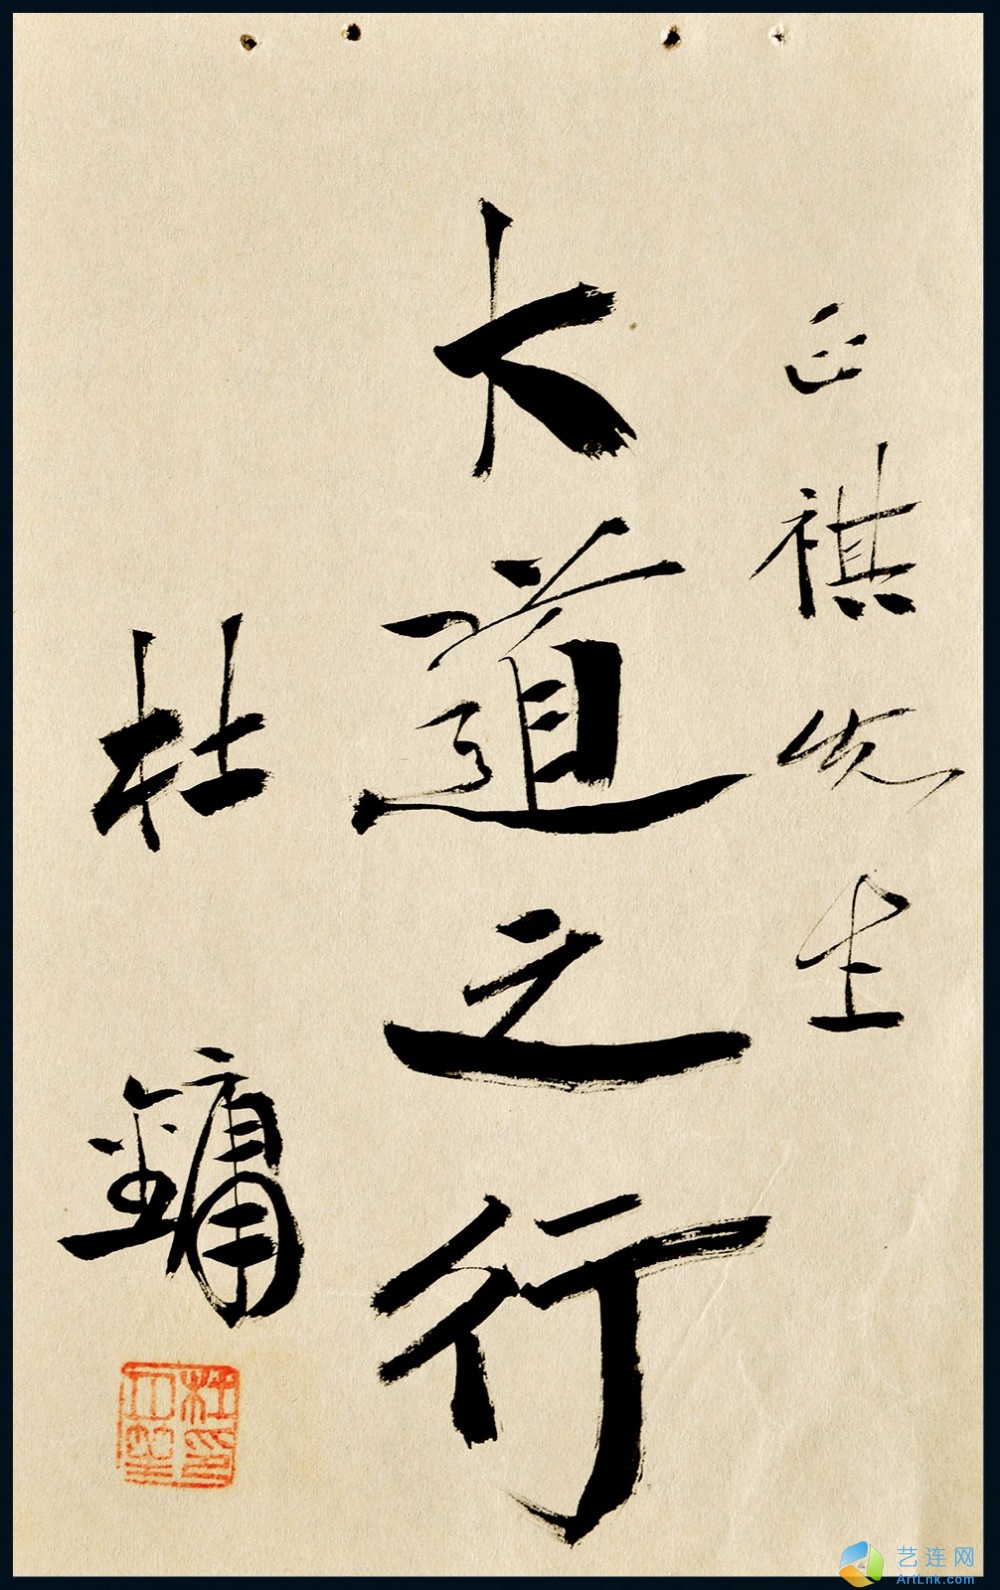 正祺先生
大道之行
杜镛
艺连网
ArtLnk.com